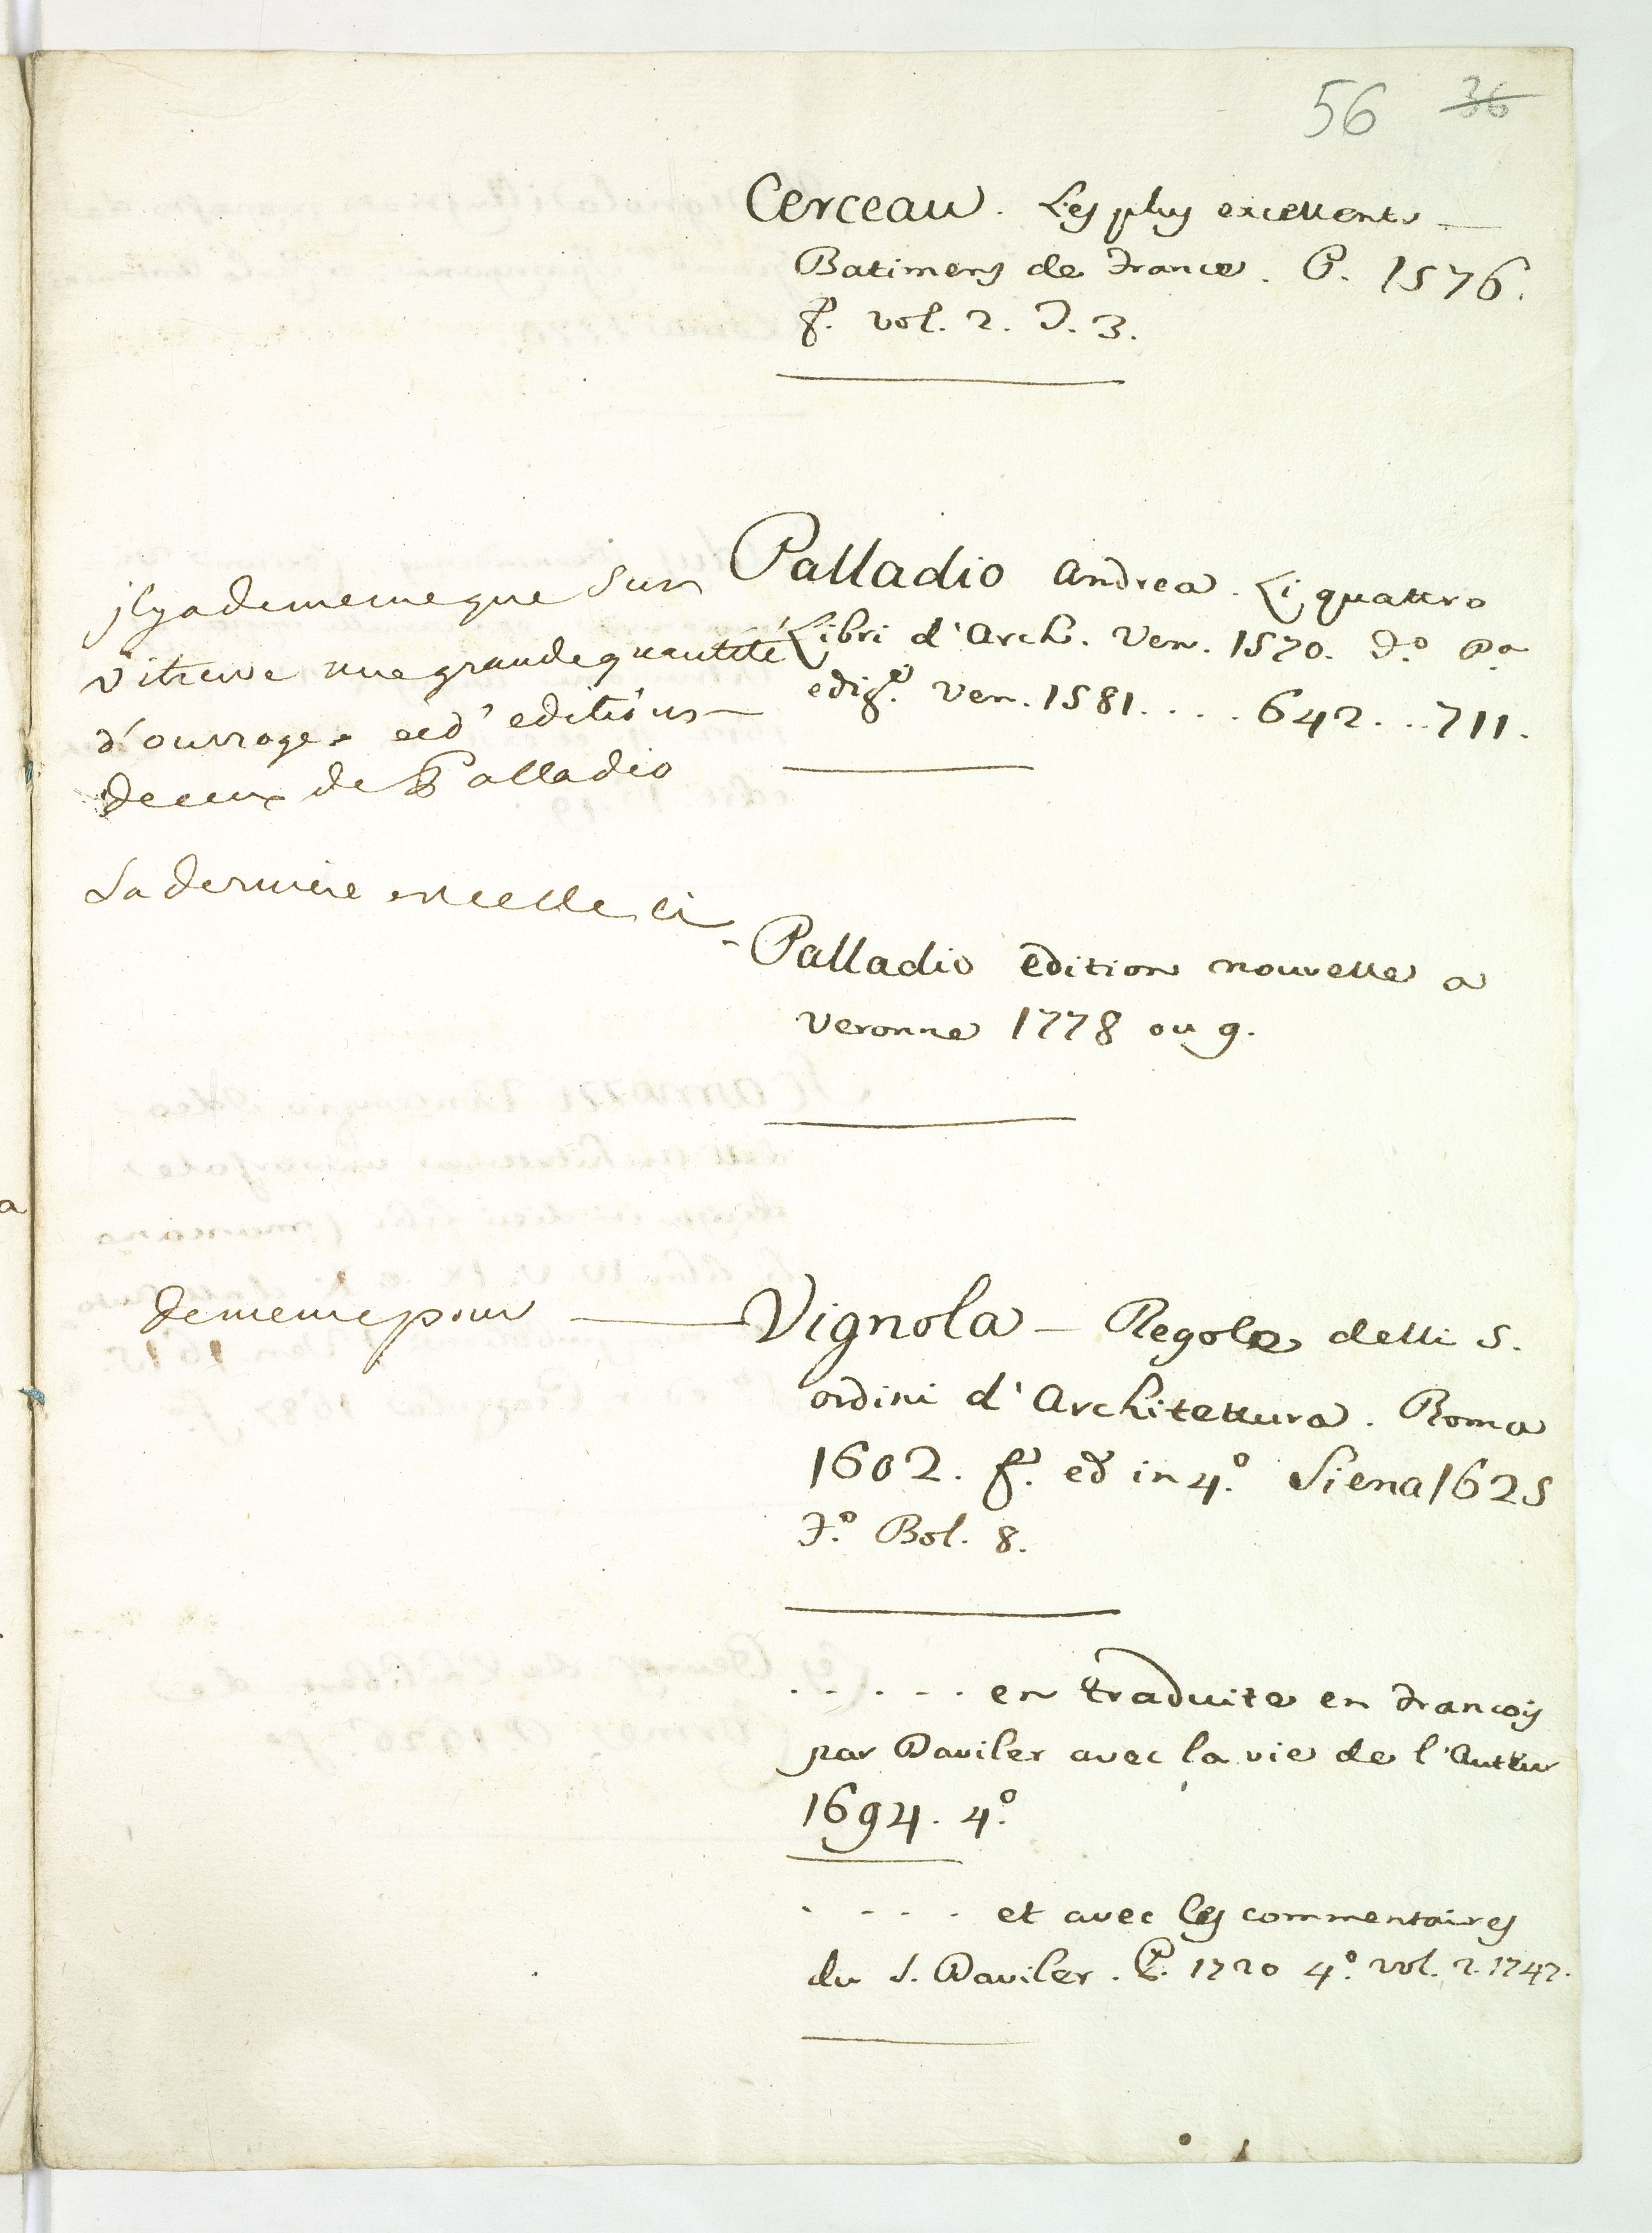 56 36
Cerceau. Les plus excellents
Batimens de France. P. 1576.
f. vol. 2. D. 3.
Palladio Andrea. Li quattro
Libri d'Arch. Ven. 1570. d.º Pª
ediz.e Ven. 1581. . . . 642. . . 711.
jl y a de meme que sur
vitruve une grande quantité
d'ouvrages et d'editions
de ceux de Palladio
La derniere est celle ci
- Palladio edition nouvelle a
Veronne 1778 ou 9.
de meme pour
Vignola - Regole delli 5.
ordini d'Architettura. Roma
1602. f. ed in 4.º Siena 1625
Bol. 8.
. . . . . en traduite en Francois
par Daviler avec la vie de l'Auteur
1694. 4.º
. . . . et avec les commentaires
du S. Daviler. P. 1720 4.º vol. 2. 1747.